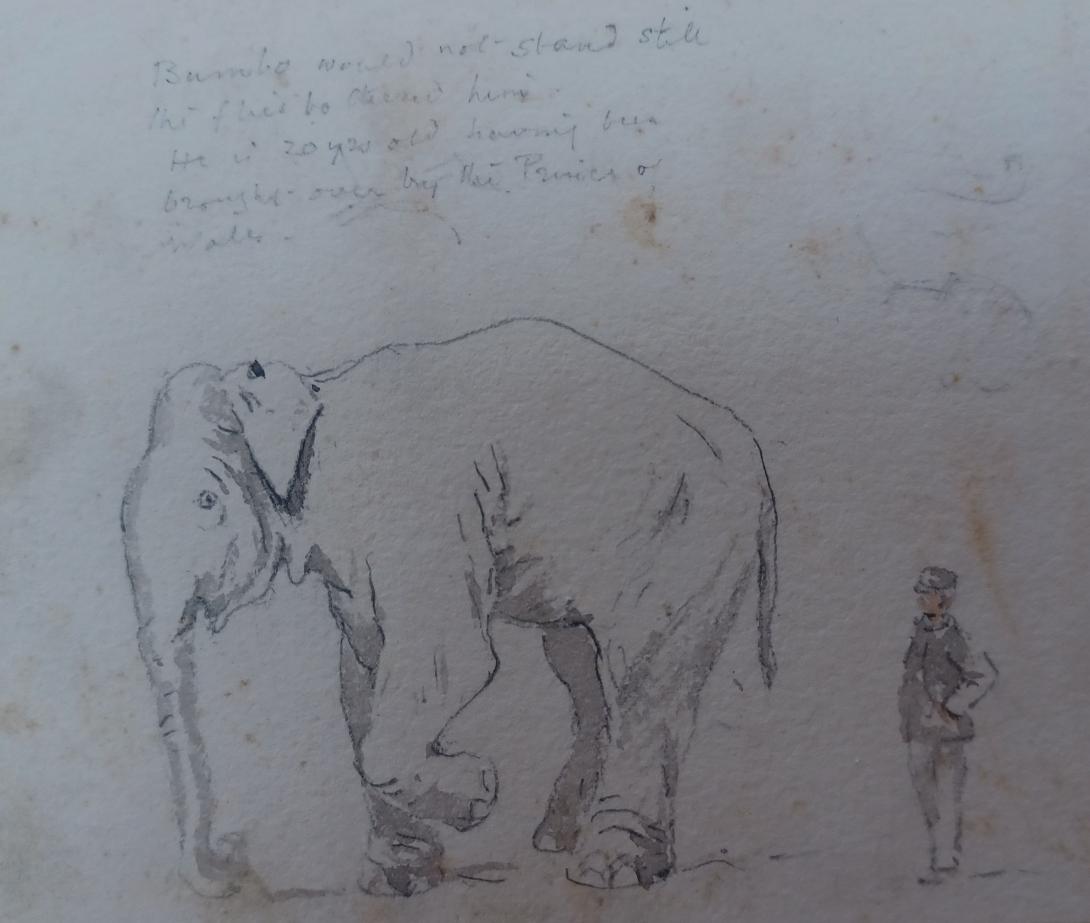 Bumbo would not stand still
the flies bothered him.
He is 20 yrs old having been
brought over by the Prince of
Wales.